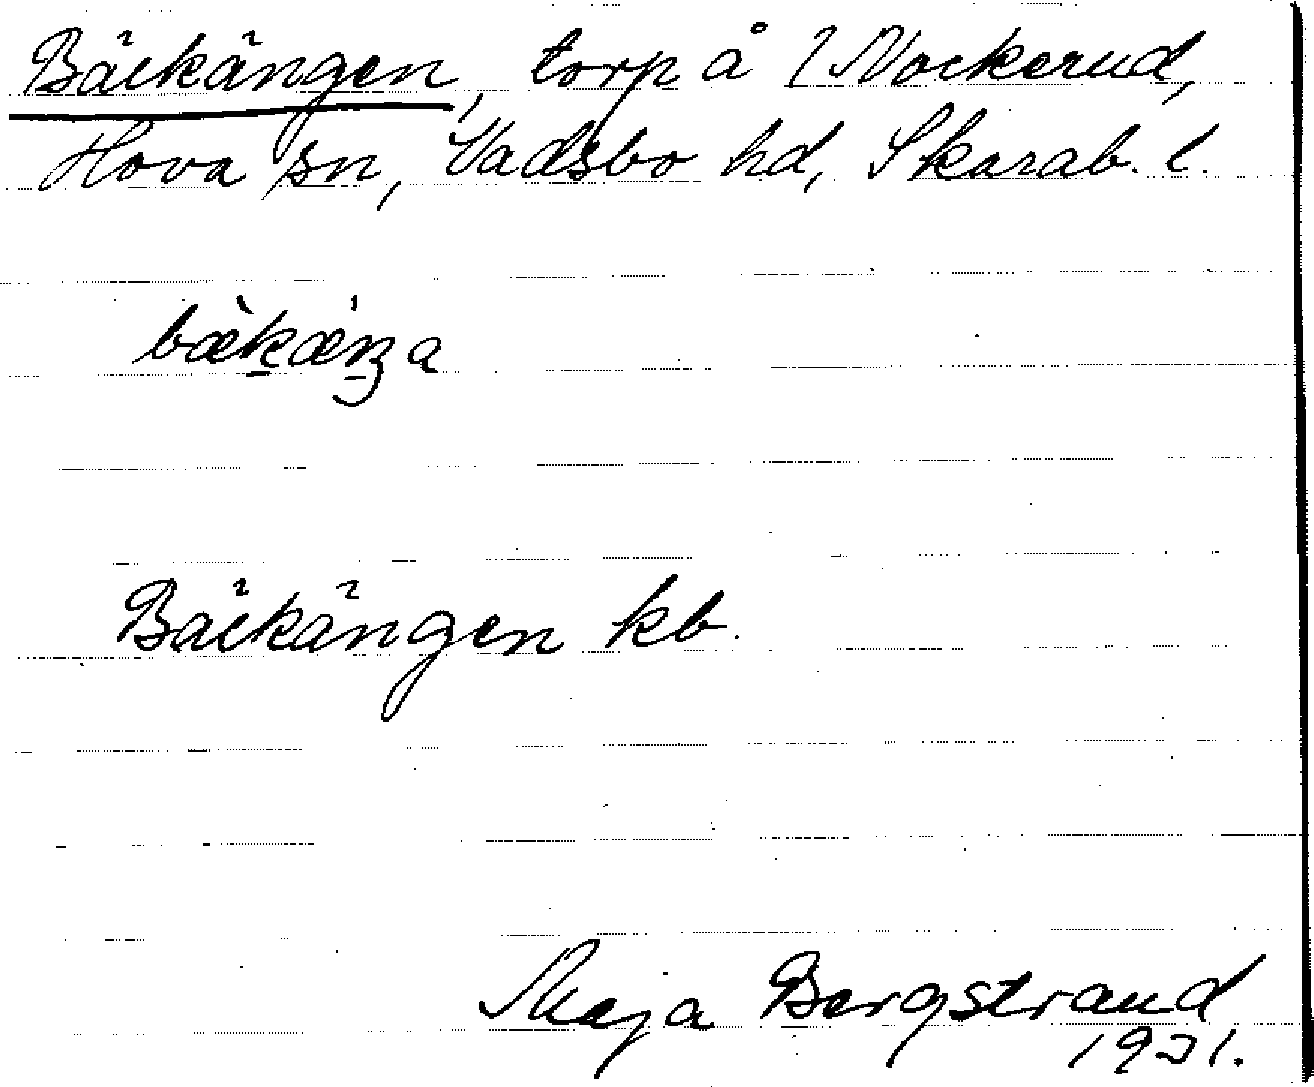 Bäckängen, torp å 2 Nockerud,
Hova sn, Vadsbo hd, Skarab. l.
bæ̀k̠ǽŋa
Bäckängen kb.
Maja Bergstrand
1931.